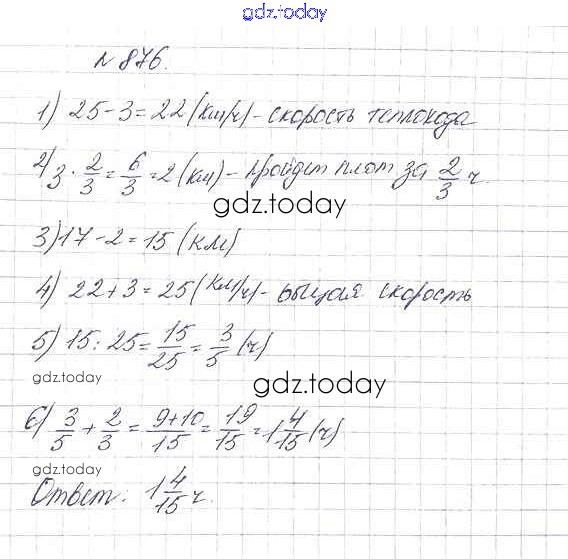 gdz.today
№ 876.
1) 25 - 3 = 22 (км/ч) - скорость теплохода
2) 3 · 2/3 = 6/3 = 2 (км) - пройдет плот за 2/3 ч.
gdz.today
3) 17 - 2 = 15 (км)
4) 22 + 3 = 25 (км/ч) - общая скорость
5) 15 : 25 = 15/25 = 3/5 (ч)
gdz.today
gdz.today
6) 3/5 + 2/3 = 9+10/15 = 19/15 = 1 4/15 (ч)
gdz.today
Ответ: 1 4/15 ч.